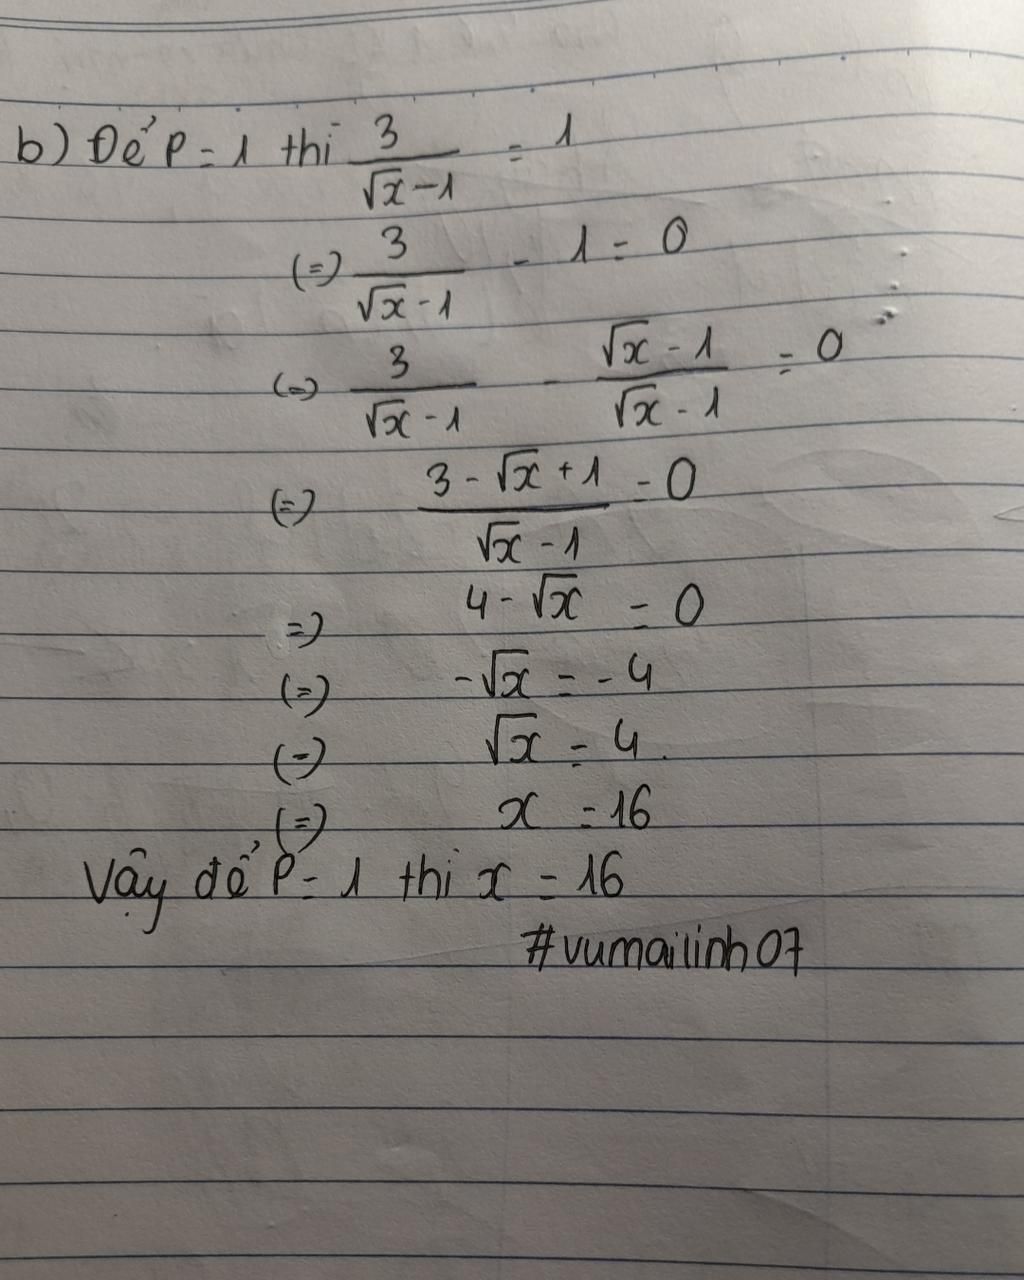 b) Để P = 1 thì 3/(√x - 1) = 1
(=) 3/(√x - 1) - 1 = 0
(=) 3/(√x - 1) - (√x - 1)/(√x - 1) = 0
(=) (3 - √x + 1)/(√x - 1) = 0
=) 4 - √x = 0
(=) -√x = -4
(=) √x = 4.
(=) x = 16
Vậy để P = 1 thì x = 16
#vumailinh07